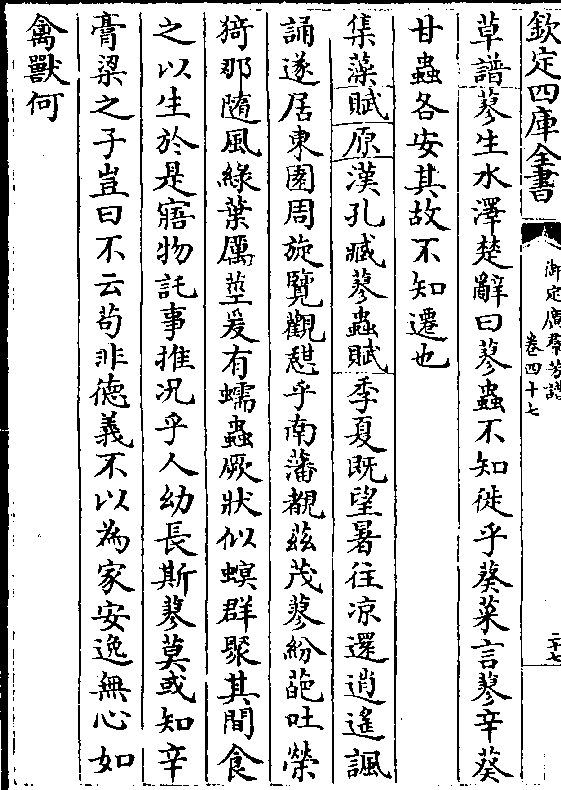 欽定四庫全書
御定廣羣芳譜
卷四十七
二十七
草譜蓼生水澤楚辭曰蓼蟲不知徙乎葵菜言蓼辛葵
甘蟲各安其故不知遷也
集藻賦原漢孔臧蓼蟲賦季夏既望暑往凉還逍遙諷
誦遂居東園周旋覽觀憇乎南藩覩茲茂蓼紛葩吐榮
猗那隨風綠葉厲莖爰有蠕蟲厥狀似螟群聚其間食
之以生於是寤物託事推况乎人幼長斯蓼莫或知辛
膏粱之子豈曰不云茍非德義不以為家安逸無心如
禽獸何